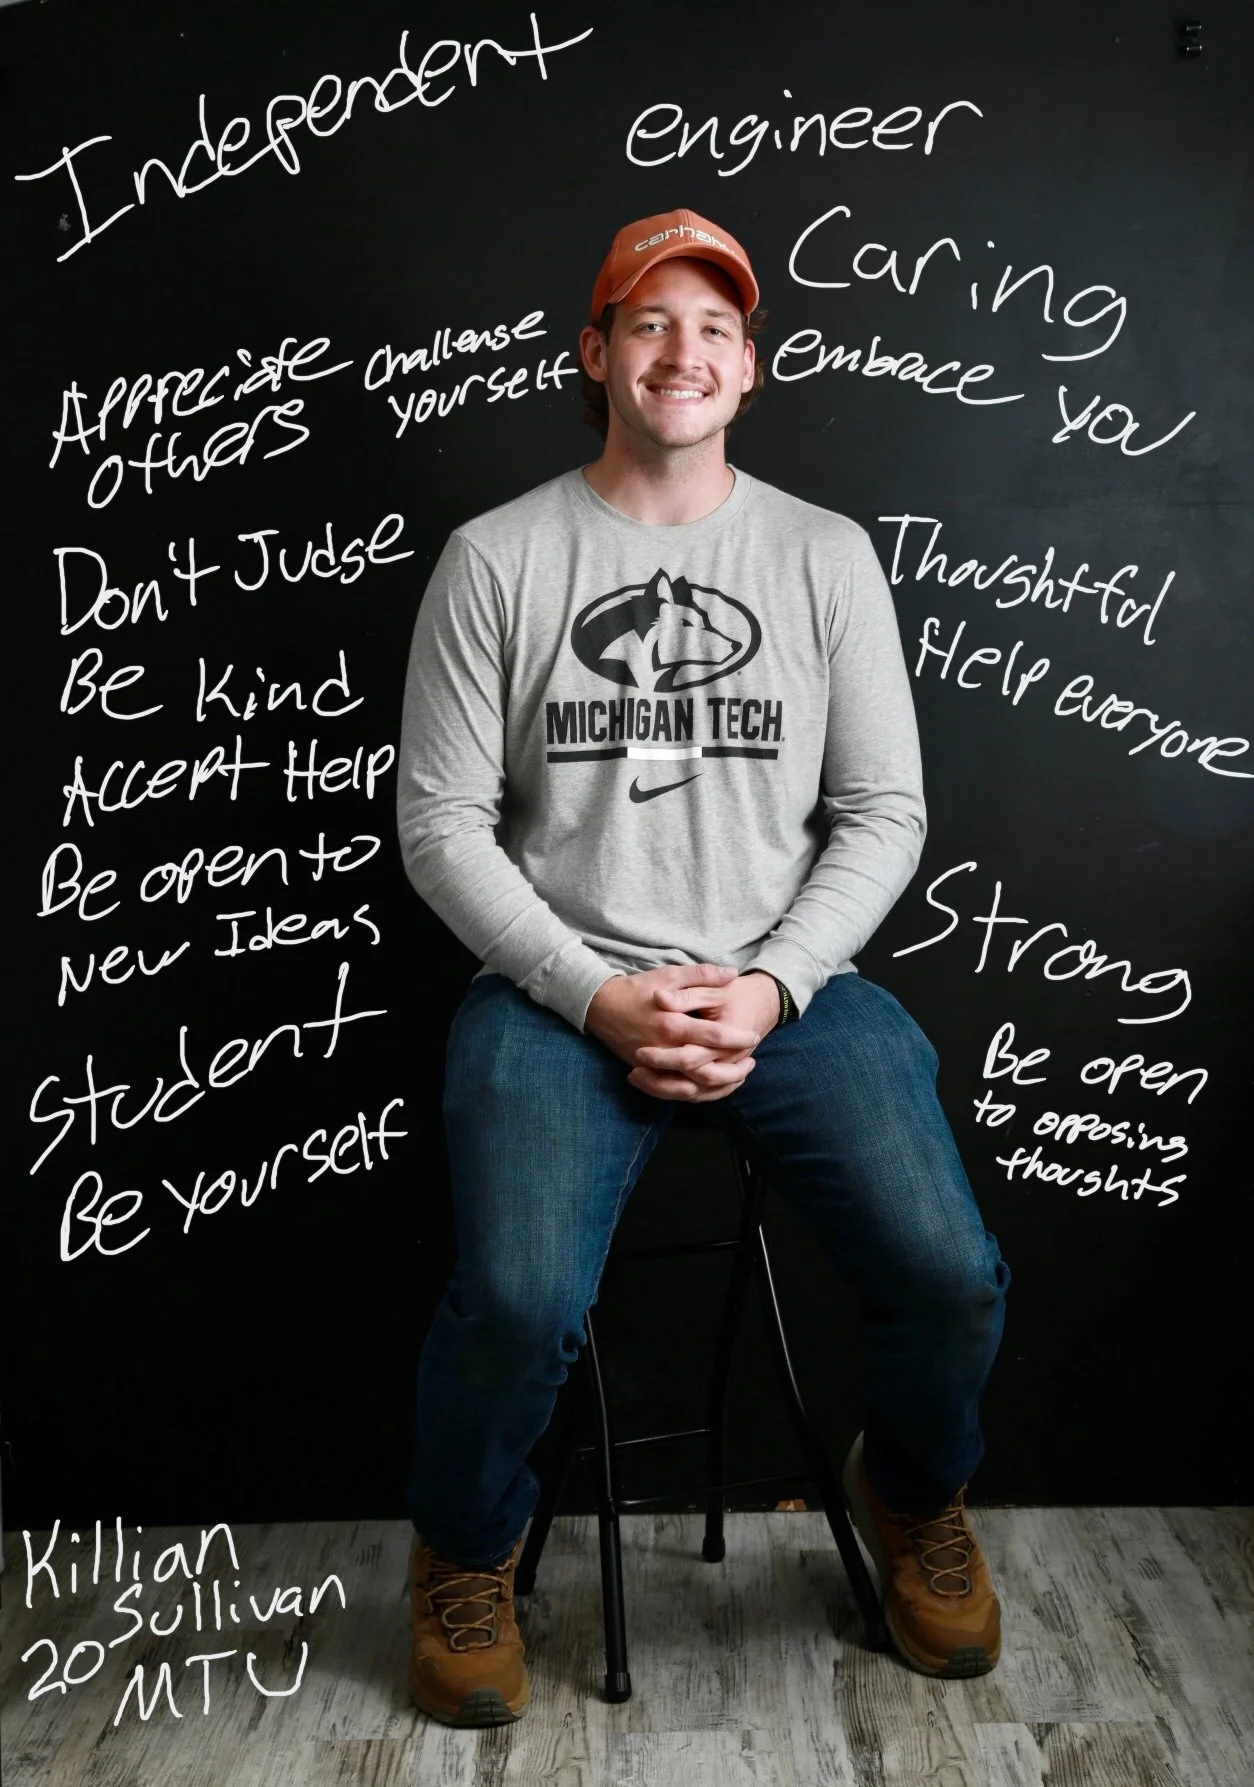 Independent
engineer
carha
Caring
embrace you
Appreciate
others
Challenge
yourself
Don't Judge
Be Kind
Accept Help
Be open to
New Ideas
Student
Be yourself
Thoughtful
Help everyone
Strong
Be open
to opposing
thoughts
MICHIGAN TECH
Killian
Sullivan
20
MTU